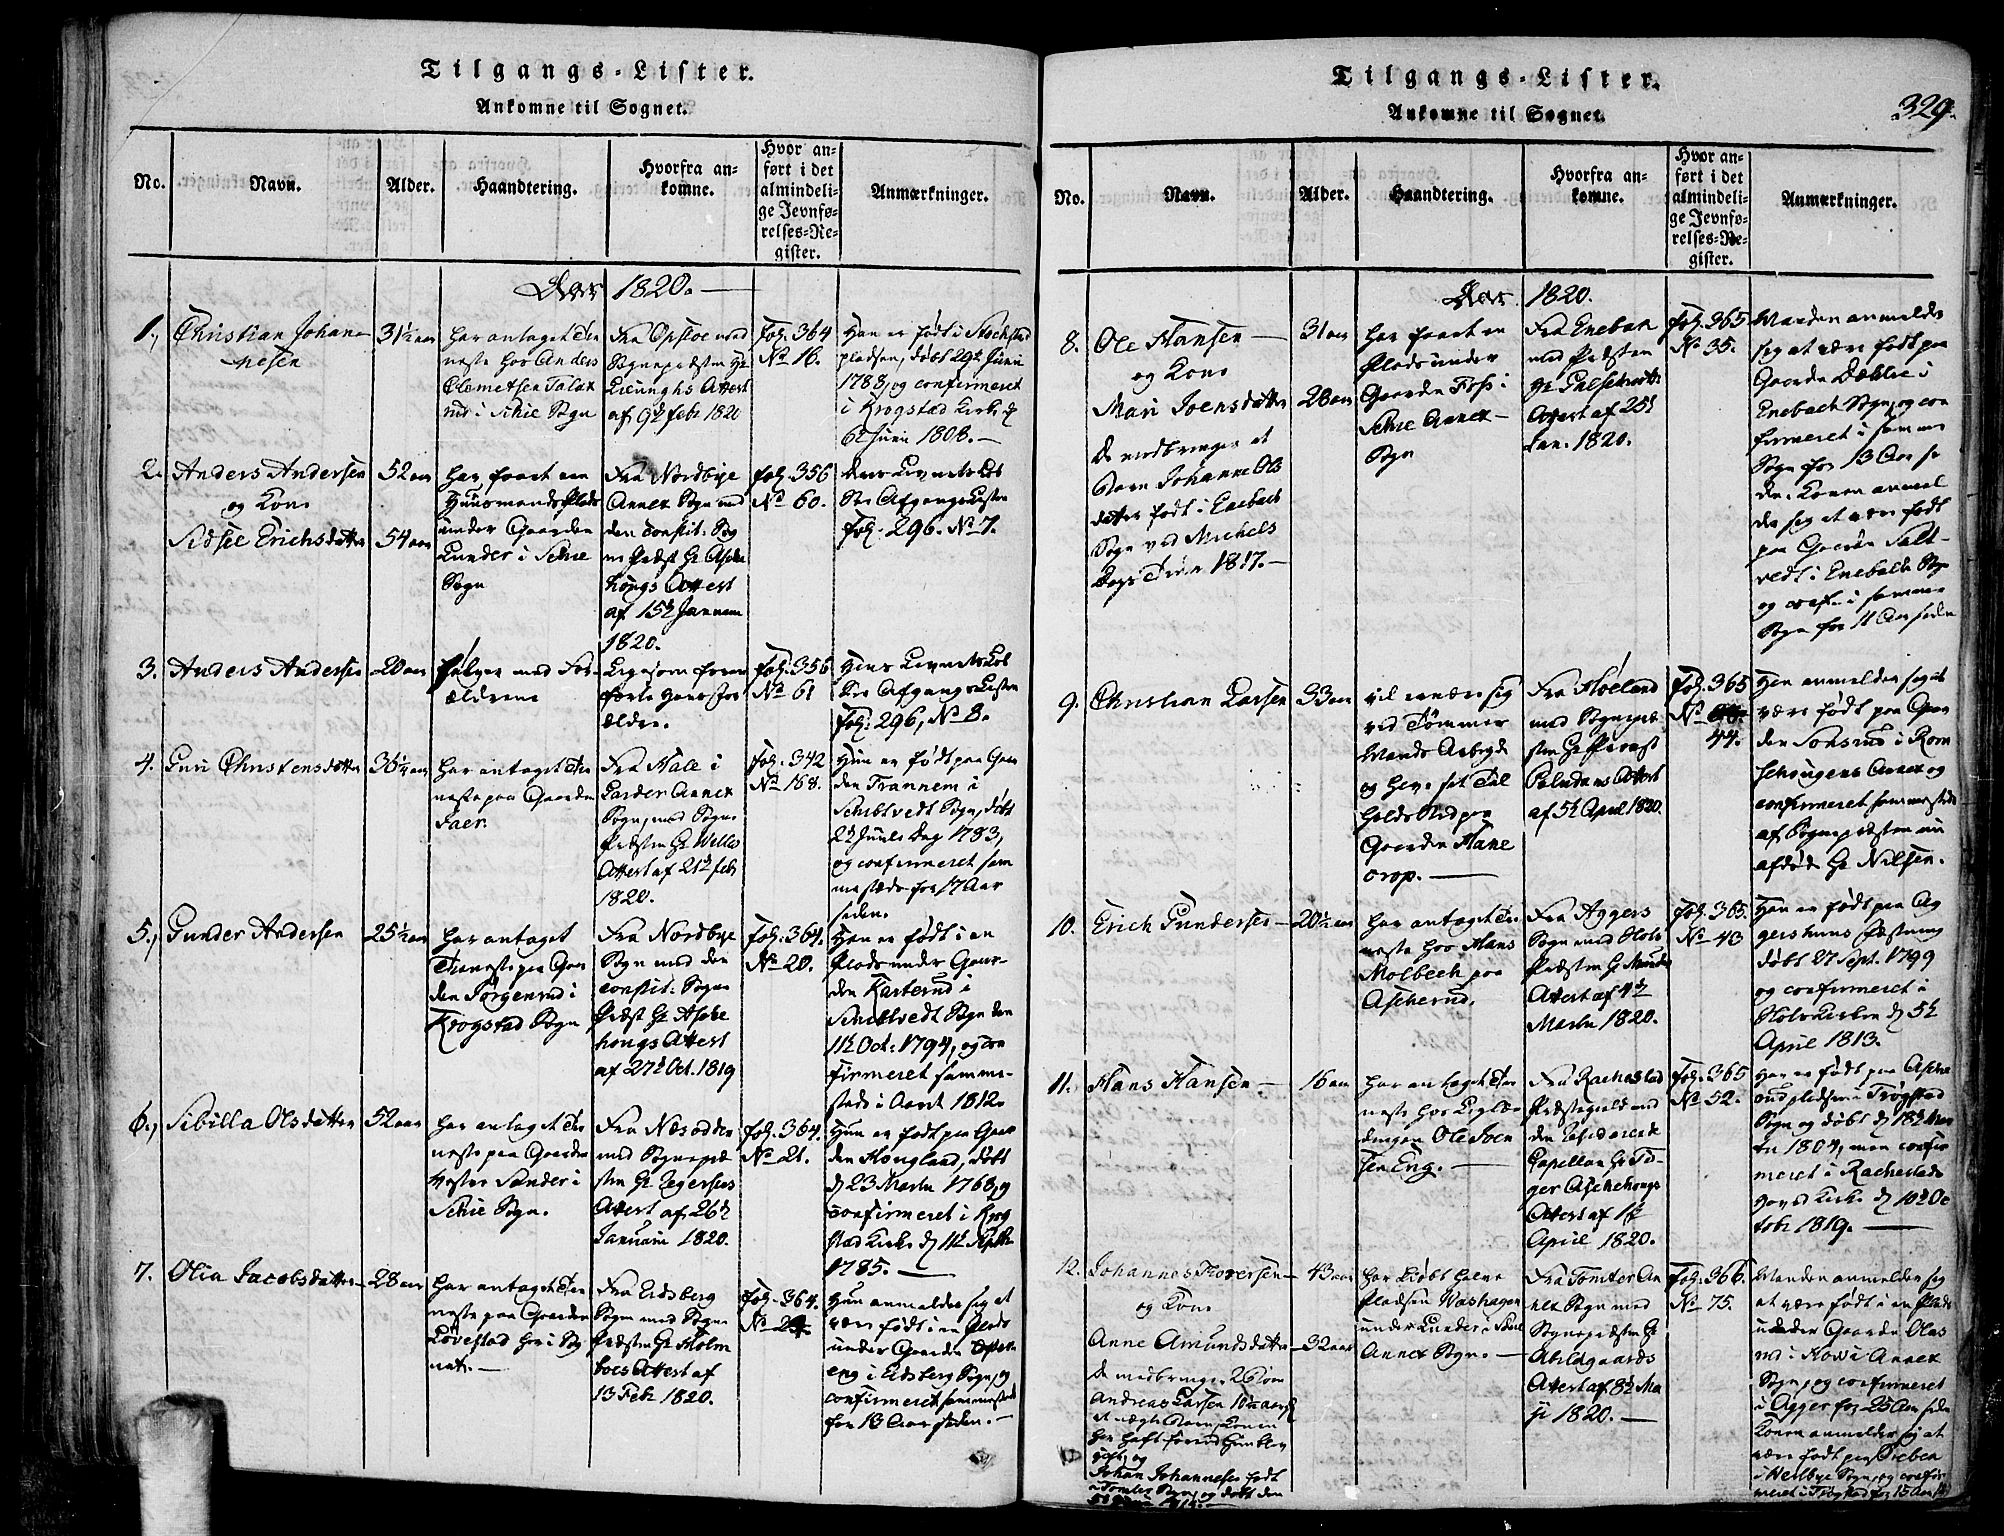 Tilgangs-Lister.
Ankomne til Sognet.
No.
Navn.
Alder.
Haandtering.
Hvorfra an-
komne.
Hvor an-
ført i det
almindeli-
ge Jevnfø-
relses-Re-
gister.
Anmærkninger.
Aar 1820.
1.,
Christian Johan-
nesen
31½ aar
har antaget Tie
neste hos Anders
Clemetsen
i Schie Sogn
Fra Opsloe med
Sognepræsten Hr
Attest
af 9de febr 1820
Fol. 364
No 16.
Han er født i
pladsen, døbt 29de Junii
1788, og confirmeret
i Krogstad Kirke d
6te Junii 1808.
2.
Anders Andersen
og Kone
Sidsee Erichsdatter
52 aar
54 aar
har faaet en
Huusmands Plads
under Gaarden
Lunder i Schie
Sogn
Fra Nordbye
Annex Sogn med
den constit: Sog
ne Præst Hr Asche
hougs Attest
af 15de Januarii
1820.
Fol. 356
No 60.
Deres Levnets Løb
See Afgangs Listen
Fol. 296. No 7.
3.
Anders Andersen
20 aar
følger med For-
ældrene
Ligesom foran
førte hans For
ældre.
Fol. 356
No 61
Hans Levnets Løb
See Afgangs Listen
Fol. 296, No 8.
4.
Guri Christensdatter
36¼ aar
har antaget Tie
neste paa Gaarden
Faer.
Fra Hale i
Annex
Sogn, med Sogne
Præsten Hr Welles
Attest af 21de feb
1820.
Fol. 342
No 168.
Hun er født paa Gaar
den Trannem i
Schibtvedt Sogn, døbt
2de Juule Dag 1783,
og confirmeret sam
mestæds for 17 Aar
siden.
5.,
Gunder Andersen
25½ aar
har antaget
Tieneste paa Gaar
den Jørgenrud i
Krogstad Sogn
Fra Nordbye
Sogn med den
constit: Sogne
Præst Hr Asche
hougs Attest
af 27de Oct. 1819
Fol. 364.
No 20.
Han er født i en
Plads under Gaar-
den Karterud i
Schibtvedt Sogn den
11te Oct: 1794, og con
firmeret samme-
stæds i Aaret 1812.
6.,
Sibilla Olsdatter
52 aar
har antaget Tie
neste paa Gaarden
Vester Sander i
Schie Sogn.
Fra Næsodden
med Sognepræ
sten Hr Eegersens
Attest af 26de
Januarii 1820.
Fol. 364.
No 21.
Hun er født paa Gaar
den Hougland, døbt
d 23 Martii 1768, og
confirmeret i Krog
stad Kirke d 11te
1785.
7.
Olia Jacobsdatter
28 aar
har antaget Tie
neste paa Gaarden
Løvestad her i Sog
net.
Fra Eidsberg
Sogn med Sogne
Præsten Hr Holm
boes Attest af
13 Febr 1820.
Fol. 364.
No 24.
Hun anmelder sig at
være født i en Plads
under Gaarden
eng i Eidsberg Sogn, og
confirmeret sammesteds
for 13 Aar siden.
Tilgangs-Lister.
Ankomne til Sognet.
329.
No.
Navn.
Alder.
Haandtering.
Hvorfra an-
komne.
Hvor an-
ført i det
almindeli-
ge Jevnfø-
relses-Re-
gister.
Anmærkninger.
Aar 1820.
8.
Ole Hansen
og Kone
Mari Joensdatter
De medbringer et
Barn Johanne Ols
datter født i Enebach
Sogn ved Michels
Dags Tider 1817.
31 aar
28 aar
har faaet en
Plads under
Gaarden Foss i
Schie Annex
Sogn
Fra Enebak
med Præsten
Hr
Attest af 25de
Jan. 1820.
Fol. 365
No 35.
Manden anmelder
sig at være født paa
Gaarden Dæhlie i
Enebach Sogn, og con
firmeret i samme
Sogn for 13 Aar si
den. Konen anmel
der sig at være født
paa Gaarden
vedt i Enebach Sogn
og conf: i samme
Sogn for 11 Aar siden
9.
Christian Larsen
33 aar
vil ernære sig
ved Tømmer
Mands Arbeyde
og have sit Til
holds Sted paa
Gaarden Hane
crop.
Fra Høeland
med Sognepræ
sten Hr Provst
Paludans Attest
af 5te April 1820.
Fol. 365
No
44.
Han anmelder sig at
være født paa Gaar
den Sonsrud i Rom
schougens Annex og
confirmeret sammesteds
af Sognepræsten nu
afdøde Hr Nilsen.
10.
Erich Gundersen
20½ aar
har antaget Tie
neste hos Hans
Molbech paa
Ascherud.
Fra Aggers
Sogn med Slots
Præsten Hr Munder
Attest af 4de
Martii 1820.
Fol. 365.
No 43
Han er født paa Ag
gershuus Fæstning
døbt 27 Sept. 1799
og confirmeret i
Slotskirken d 5te
April 1813.
11.
Hans Hansen
16 aar
har antaget Tie
neste hos
Ole Joen
sen Eng.
Fra Rachestad
Præstegield med
den residerende
Capellan Hr Ti-
ger Aschehougs
Attest af 1ste
April 1820.
Fol. 365
No 52.
Han er født paa
pladsen i Trøgstad
Sogn og døbt d 18de Mar
tii 1804, men confir
meret i Rachestads
hoved Kirke d 10de Oc
tobr 1819.
12.
Johannes Torersen
og Kone
Anne Amundsdatter
De medbringer 2 Børn
Andreas Larsen 10½ aar
et uægte Barn, Konen
har haft førend hun blev
gift, og
Johan Johannesen født
i Tomter Sogn, og døbt den
43 aar
32 aar
har kiøbt halve
Pladsen Washagen
under Lunder i Schie
Annex Sogn.
Fra Tomter An
nex Sogn med
Sognepræsten Hr
Abildgaards
Attest af 8de Ma
ji 1820.
Fol. 366.
No 75.
Manden anmelder sig
at være født i en Plads
under Gaarden Olas
rud i Annex
Sogn, og confirmeret
i Agger for 25 Aar siden
Konen anmelder sig at
være født paa
i Sogn, og confir
meret i Trøgstad for 15 Aar